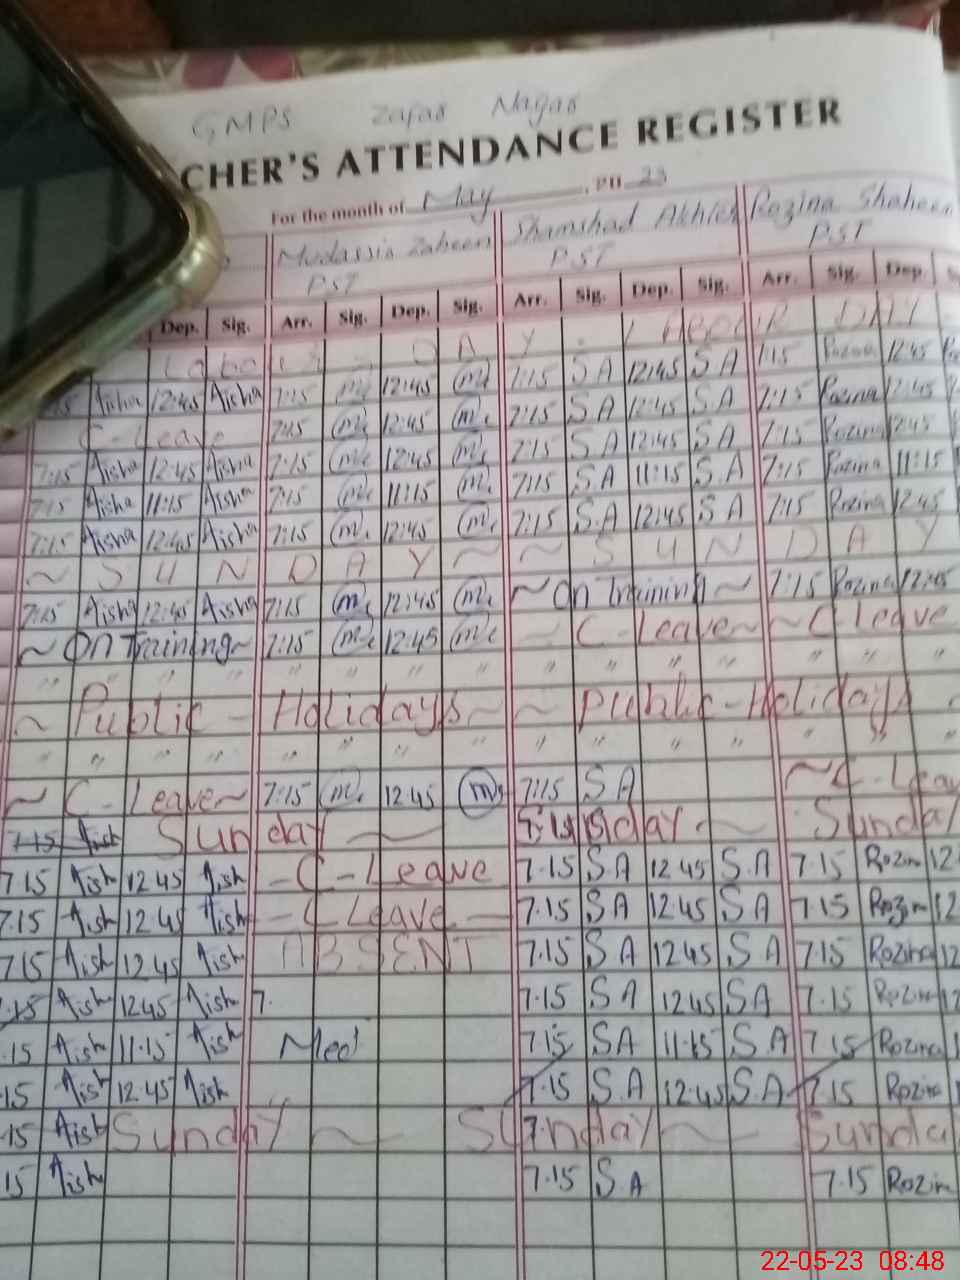 GMPS Zafar Nagar
CHER'S ATTENDANCE REGISTER
For the month of May, 20 23
Mudassia Zaheen Shamshad Akhter Rozina Shaheen
PST PST PST
Dep. Sig. Arr. Sig. Dep. Sig. Arr. Sig. Dep. Sig. Arr. Sig. Dep. S
Labour DAY
7:15 Rozina 12:45
15 Aisha 12:45 Aisha 7:15 m 12:45 m 7:15 S.A 12:45 S.A 7:15 Rozina 12:45
C-Leave 7:15 m 12:45 m 7:15 S.A 12:45 S.A 7:15 Rozina 12:45
7:15 Aisha 12:45 Aisha 7:15 m 12:45 m 7:15 S.A 12:45 S.A 7:15 Rozina 11:15
7:15 Aisha 11:15 Aisha 7:15 m 11:15 m 7:15 S.A 11:15 S.A 7:15 Rozina 12:45
7:15 Aisha 12:45 Aisha 7:15 m 12:45 m 7:15 S.A 12:45 S.A
~ SUNDAY ~ ~ SUNDAY
7:15 Aisha 12:45 Aisha 7:15 m 12:45 m ~ On Training ~ 7:15 Rozina 12:45
~ On Training ~ 7:15 m 12:45 m ~ C-Leave ~ ~ C-Leave
" " " " " " " " " " " " "
~ Public - Holidays ~ ~ Public - Holidays
" " " " " " " " " " " " "
~ C-Leave ~ 7:15 m 12:45 m 7:15 S.A ~ C-Leav
7.15 Aish Sunday ~ Sunday ~ Sunday
7.15 Aish 12.45 Aish - C-Leave 7.15 S.A 12.45 S.A 7.15 Rozina 12
7.15 Aish 12.45 Aish - C Leave - 7.15 S.A 12.45 S.A 7.15 Rozina 12
7.15 Aish 12.45 Aish ABSENT 7.15 S.A 12.45 S.A 7.15 Rozina 12
7.15 Aish 12.45 Aish 7. 7.15 S.A 12.45 S.A 7.15 Rozina 12
.15 Aish 11.15 Aish Med 7.15 S.A 11.15 S.A 7.15 Rozina 1
.15 Aish 12.45 Aish 7.15 S.A 12.45 S.A 7.15 Rozina
.15 Aish Sunday ~ Sunday ~ Sunda
15 Aish 7.15 S.A 7.15 Rozina
22-05-23 08:48